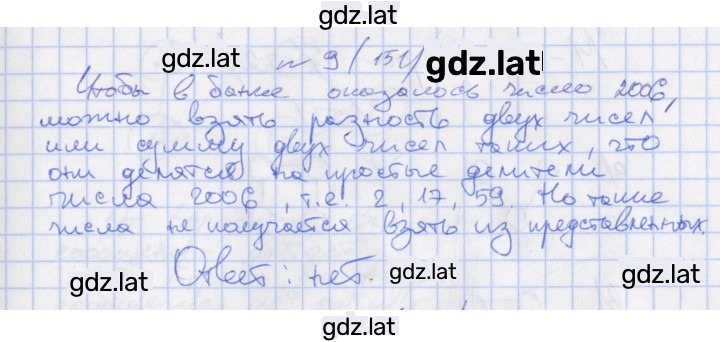 gdz.lat
gdz.lat
n 9 (151)
gdz.lat
Чтобы в банке оказалось число 2006,
можно взять разность двух чисел
или сумму двух чисел таких, что
они делятся на простые делители
числа 2006, т.е. 2, 17, 59. Но такие
числа не получается взять из представленных.
Ответ: нет.
gdz.lat
gdz.lat
gdz.lat
gdz.lat